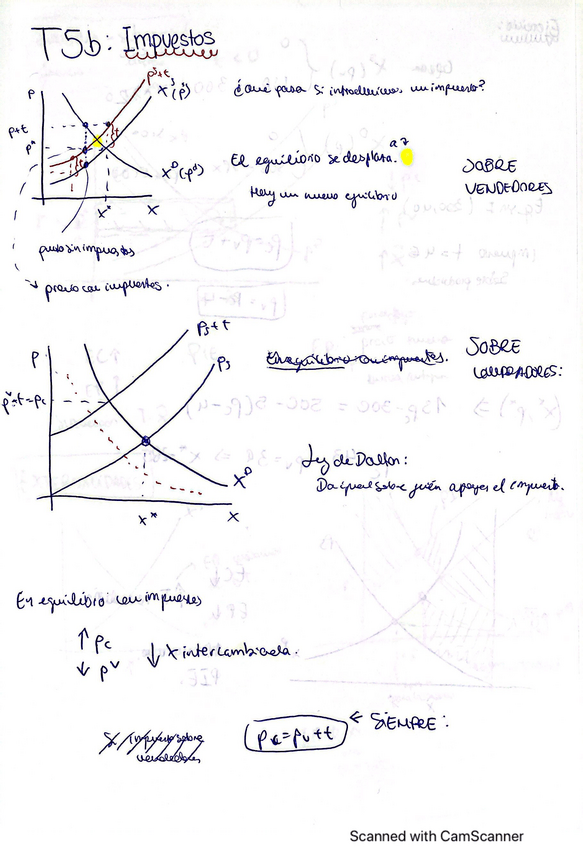 T5b: Impuestos
p^s+t
X^s(p^s)
p
p+t
p*
t
t
X^D(p^d)
x*
x
¿Qué pasa si introducimos un impuesto?
El equilibrio se desplaza.
Hay un nuevo equilibrio
SOBRE
VENDEDORES
precio sin impuestos
precio con impuestos.
p
ps+t
ps
X^D
x*
x
con impuestos.
SOBRE
COMPRADORES:
Ley de Dalton:
Da igual sobre quién apoyes el impuesto.
En equilibrio con impuestos
↑ pc
↓ p^v
↓ x intercambiada.
Si impuesto sobre
vendedores
pc=pv+t
← SIEMPRE:
Scanned with CamScanner